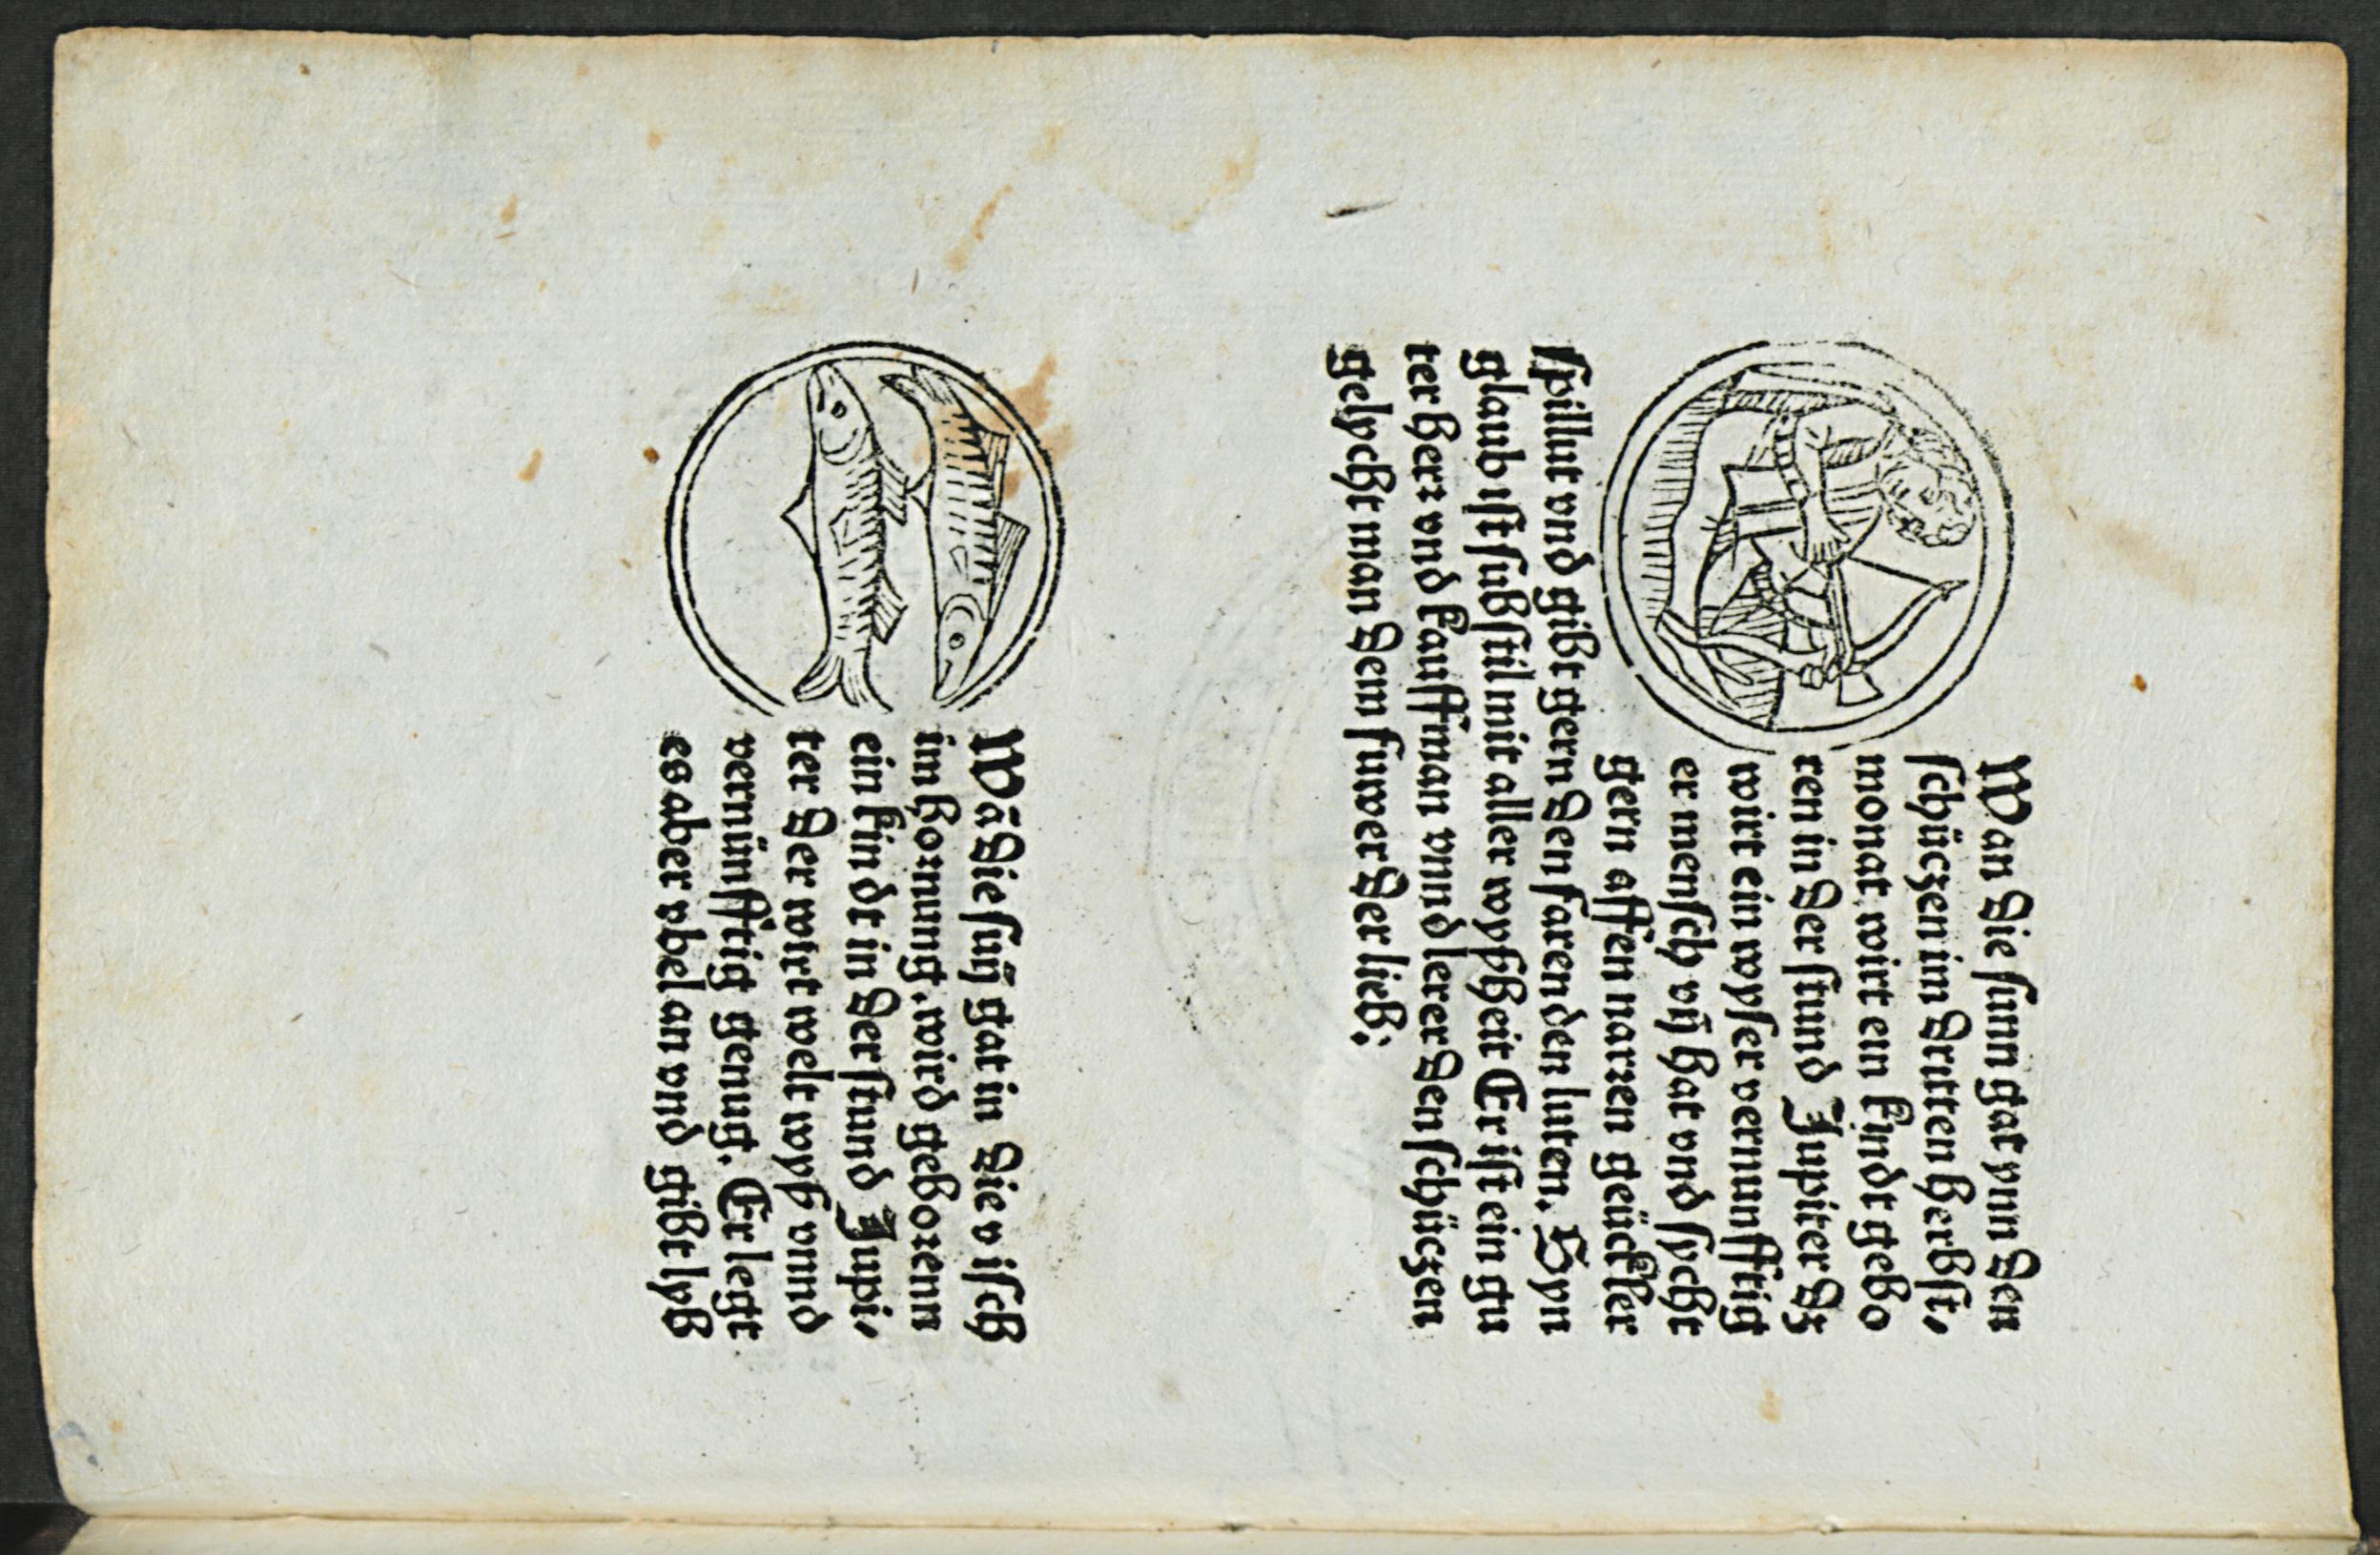 Wan die sunn gat ynn den
schüczen im dritten herbst⸗
monat wirt ein kindt gebo
ren in der stund Jupiter dz
wirt ein wyser vernunfftig
er mensch vn̄ hat vnd sycht
gern affen narren geückler
spillut vnd gibt gern den farenden luten. Syn
glaub ist substil mit aller wyßheit Er ist ein gu
ter herr vnd kauffman vnnd lerer den schüczen
gelycht man dem suwer der lieb:
Wā die suñ gat in die visch
im hornung. wird geborenn
ein kindt in der stund Jupi⸗
ter der wirt welt wyß vnnd
vernünfftig genug. Er legt
es aber vbel an vnd gibt lyb